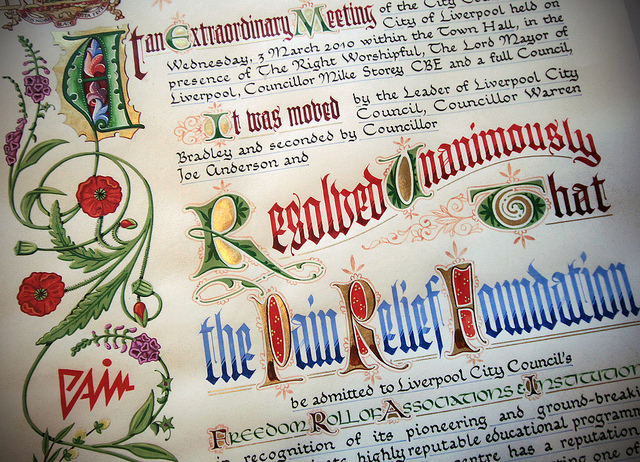 At an Extraordinary Meeting of the City
City of Liverpool held on
Wednesday, 3 March 2010 within the Town Hall, in the
presence of The Right Worshipful, The Lord Mayor of
Liverpool, Councillor Mike Storey CBE and a full Council,
It was moved by the Leader of Liverpool City
Council, Councillor Warren
Bradley and seconded by Councillor
Joe Anderson and
Resolved Unanimously
That
the Pain Relief Foundation
PAIN
be admitted to Liverpool City Council's
FREEDOM ROLL OF ASSOCIATIONS & INSTITUTION
recognition of its pioneering and ground-break
highly reputable educational programm
has a reputation
one of